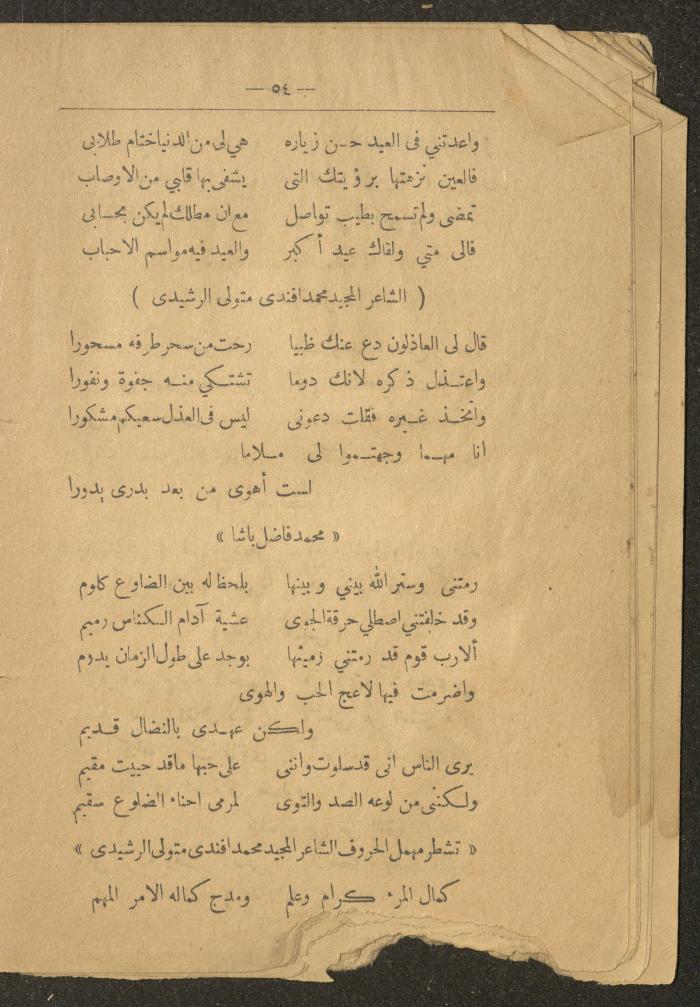 — ٥٤ —
واعدتني فى العيد حسن زياره هي لى من الدنيا ختام طلابى
فالعين نزهتها برؤيتك التى يشفى بها قلبي من الاوصاب
تمضى ولم تسمح بطيب تواصل مع ان مطلك لم يكن بحسابى
فالى متي ولقاك عيد أكبر والعيد فيه مواسم الاحباب
( الشاعر المجيد محمد افندى متولى الرشيدى )
قال لى العاذلون دع عنك ظبيا رحت من سحر طرفه مسحورا
واعتذل ذكره لانك دوما تشتكي منه جفوة ونفورا
واتخذ غيره فقلت دعونى ليس فى العذل سعيكم مشكورا
انا مهما وجهتموا لى ملاما
لست أهوى من بعد بدرى بدورا
« محمد فاضل باشا »
رمتنى وستر الله بيني وبينها بلحظ له بين الضلوع كلوم
وقد خلفتني اصطلي حرقة الجوى عشية آدام الكناس رميم
ألا رب قوم قد رمتني زميتها بوجد على طول الزمان يدوم
واضرمت فيها لاعج الحب والهوى
ولكن عهدى بالنضال قديم
يرى الناس انى قد سلوت وانتى على حبها ما قد حييت مقيم
ولكننى من لوعه الصد والتوى لمرمى احناء الضلوع سقيم
« تشطر مهمل الحروف الشاعر المجيد محمد افندى متولى الرشيدى »
كمال المرء كرام وعلم ومدح كماله الامر المهم